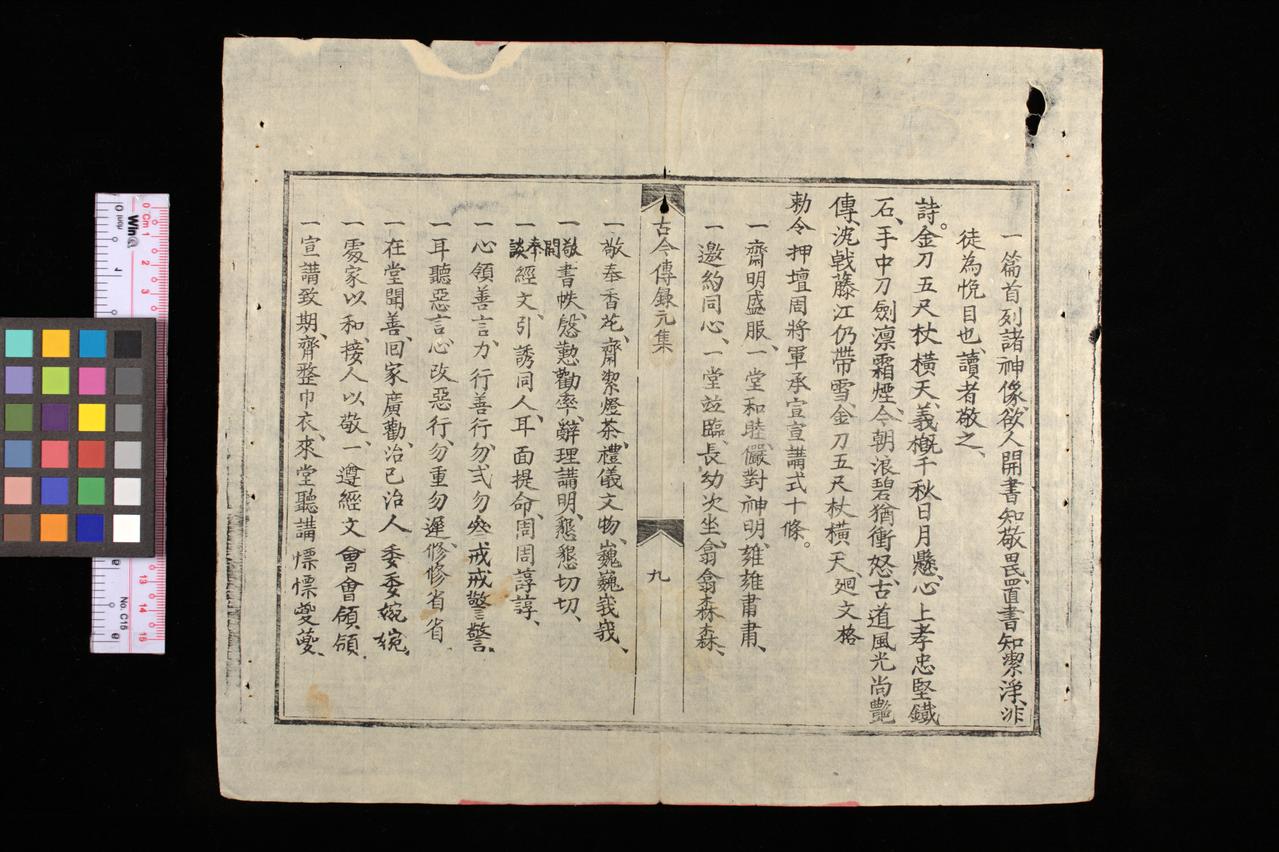 一篇首列諸神像、欲人開書知敬畏、置書知潔淨、非
徒為悅目也、讀者敬之、
詩。金刀五尺杖橫天、義概千秋日月懸、心上孝忠堅鐵
石、手中刀劍凛霜煙、今朝浪碧猶衝怒、古道風光尚艷
傳、沈戟藤江仍帶雪、金刀五尺杖橫天、廻文格
勅令押壇周將軍承宣宣講式十條。
一齋明盛服、一堂和睦、儼對神明、雍雍肅肅、
一邀約同心、一堂竝臨、長幼次坐、翕翕森森、
古今傳錄元集
九
一敬奉香花、齋潔燈茶、禮儀文物、巍巍峩峩、
一敬開書帙、慇懃勸率、辭理講明、懇懇切切、
一奉談經文、引誘同人、耳面提命、周周諄諄、
一心領善言、力行善行、勿弍勿叄、戒戒警警、
一耳聽惡言、心改惡行、勿重勿遲、修修省省
一在堂聞善、回家廣勸、治己治人、委委婉婉、
一處家以和、接人以敬、一遵經文、會會領領、
一宣講致期、齊整巾衣、來堂聽講、慄慄夔夔、